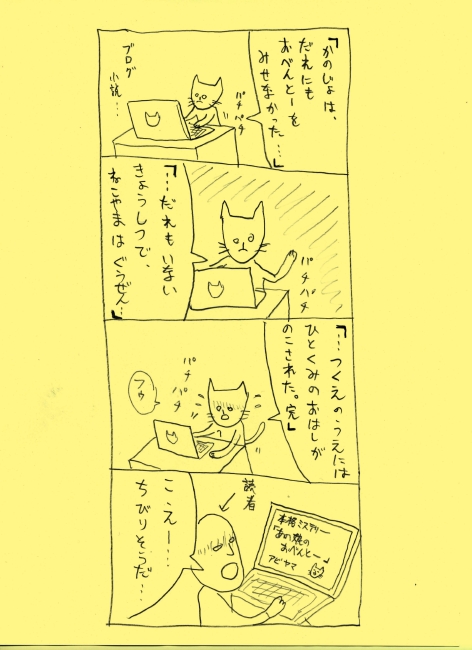 「かのじょは、
だれにも
おべんとーを
みせなかった…」
パチパチ
ブログ
小説…
「…だれもいない
きょうしつで、
ねこやまはぐうぜん…」
パチパチ
「…つくえのうえには
ひとくみのおはしが
のこされた。完」
パチ
パチ
フゥ
読者
本格ミステリー
「あの娘の
おべんとー」
アビヤマ
こえー…
ちびりそうだ…